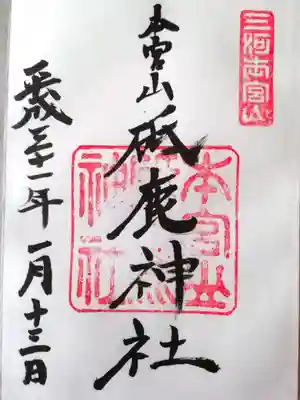 三河本宮山
本宮山
砥鹿神社
平成三十一年一月十三日
本宮山
神社